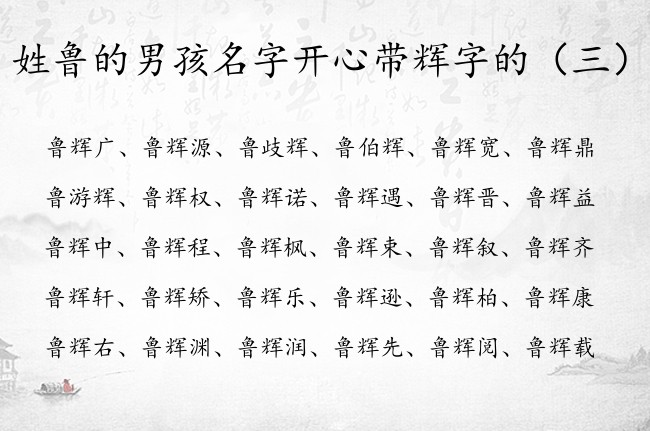 姓鲁的男孩名字开心带辉字的（三）
鲁辉广、鲁辉源、鲁歧辉、鲁伯辉、鲁辉宽、鲁辉鼎
鲁游辉、鲁辉权、鲁辉诺、鲁辉遇、鲁辉晋、鲁辉益
鲁辉中、鲁辉程、鲁辉枫、鲁辉束、鲁辉叙、鲁辉齐
鲁辉轩、鲁辉矫、鲁辉乐、鲁辉逊、鲁辉柏、鲁辉康
鲁辉右、鲁辉渊、鲁辉润、鲁辉先、鲁辉阅、鲁辉载